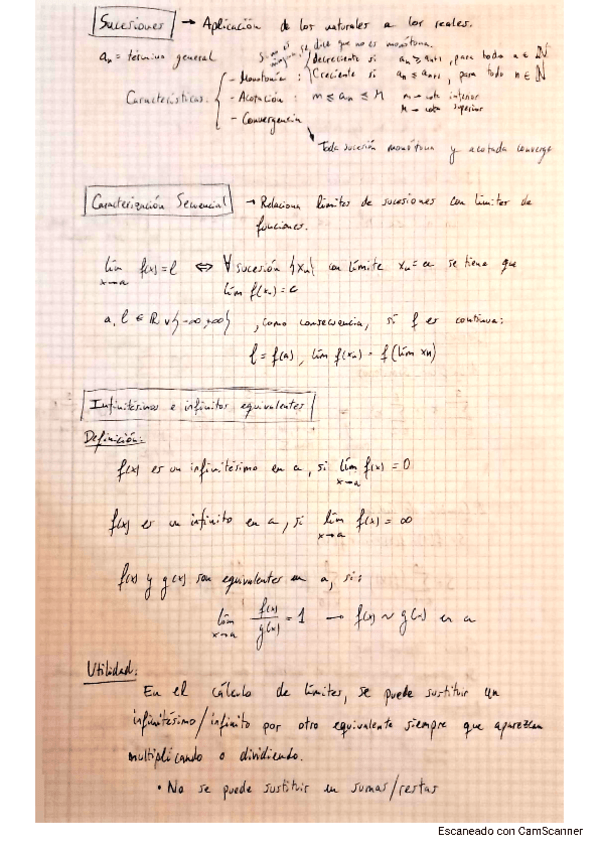 Sucesiones → Aplicación de los naturales a los reales.
Si no es ninguna, se dice que no es monótona.
aₙ = término general
decreciente si aₙ ≥ aₙ₊₁, para todo n ∈ ℕ
Características: - Monotonía : Creciente si aₙ ≤ aₙ₊₁, para todo n ∈ ℕ
- Acotación : m ≤ aₙ ≤ M m → cota inferior
M → cota superior
- Convergencia
↘ Toda sucesión monótona y acotada converge
Caracterización Secuencial → Relaciona límites de sucesiones con límites de
funciones.
lím f(x) = l ⇔ ∀ sucesión {xₙ} con límite xₙ = a se tiene que
x→a
lím f(xₙ) = l
a, l ∈ ℝ ∪ {-∞, ∞} , como consecuencia, si f es continua:
l = f(a), lím f(xₙ) = f(lím xₙ)
Infinitésimos e infinitos equivalentes
Definición:
f(x) es un infinitésimo en a, si lím f(x) = 0
x→a
f(x) es un infinito en a, si lím f(x) = ∞
x→a
f(x) y g(x) son equivalentes en a, si:
lím f(x)/g(x) = 1 → f(x) ~ g(x) en a
x→a
Utilidad:
En el cálculo de límites, se puede sustituir un
infinitésimo/infinito por otro equivalente siempre que aparezcan
multiplicando o dividiendo.
• No se puede sustituir en sumas/restas
Escaneado con CamScanner